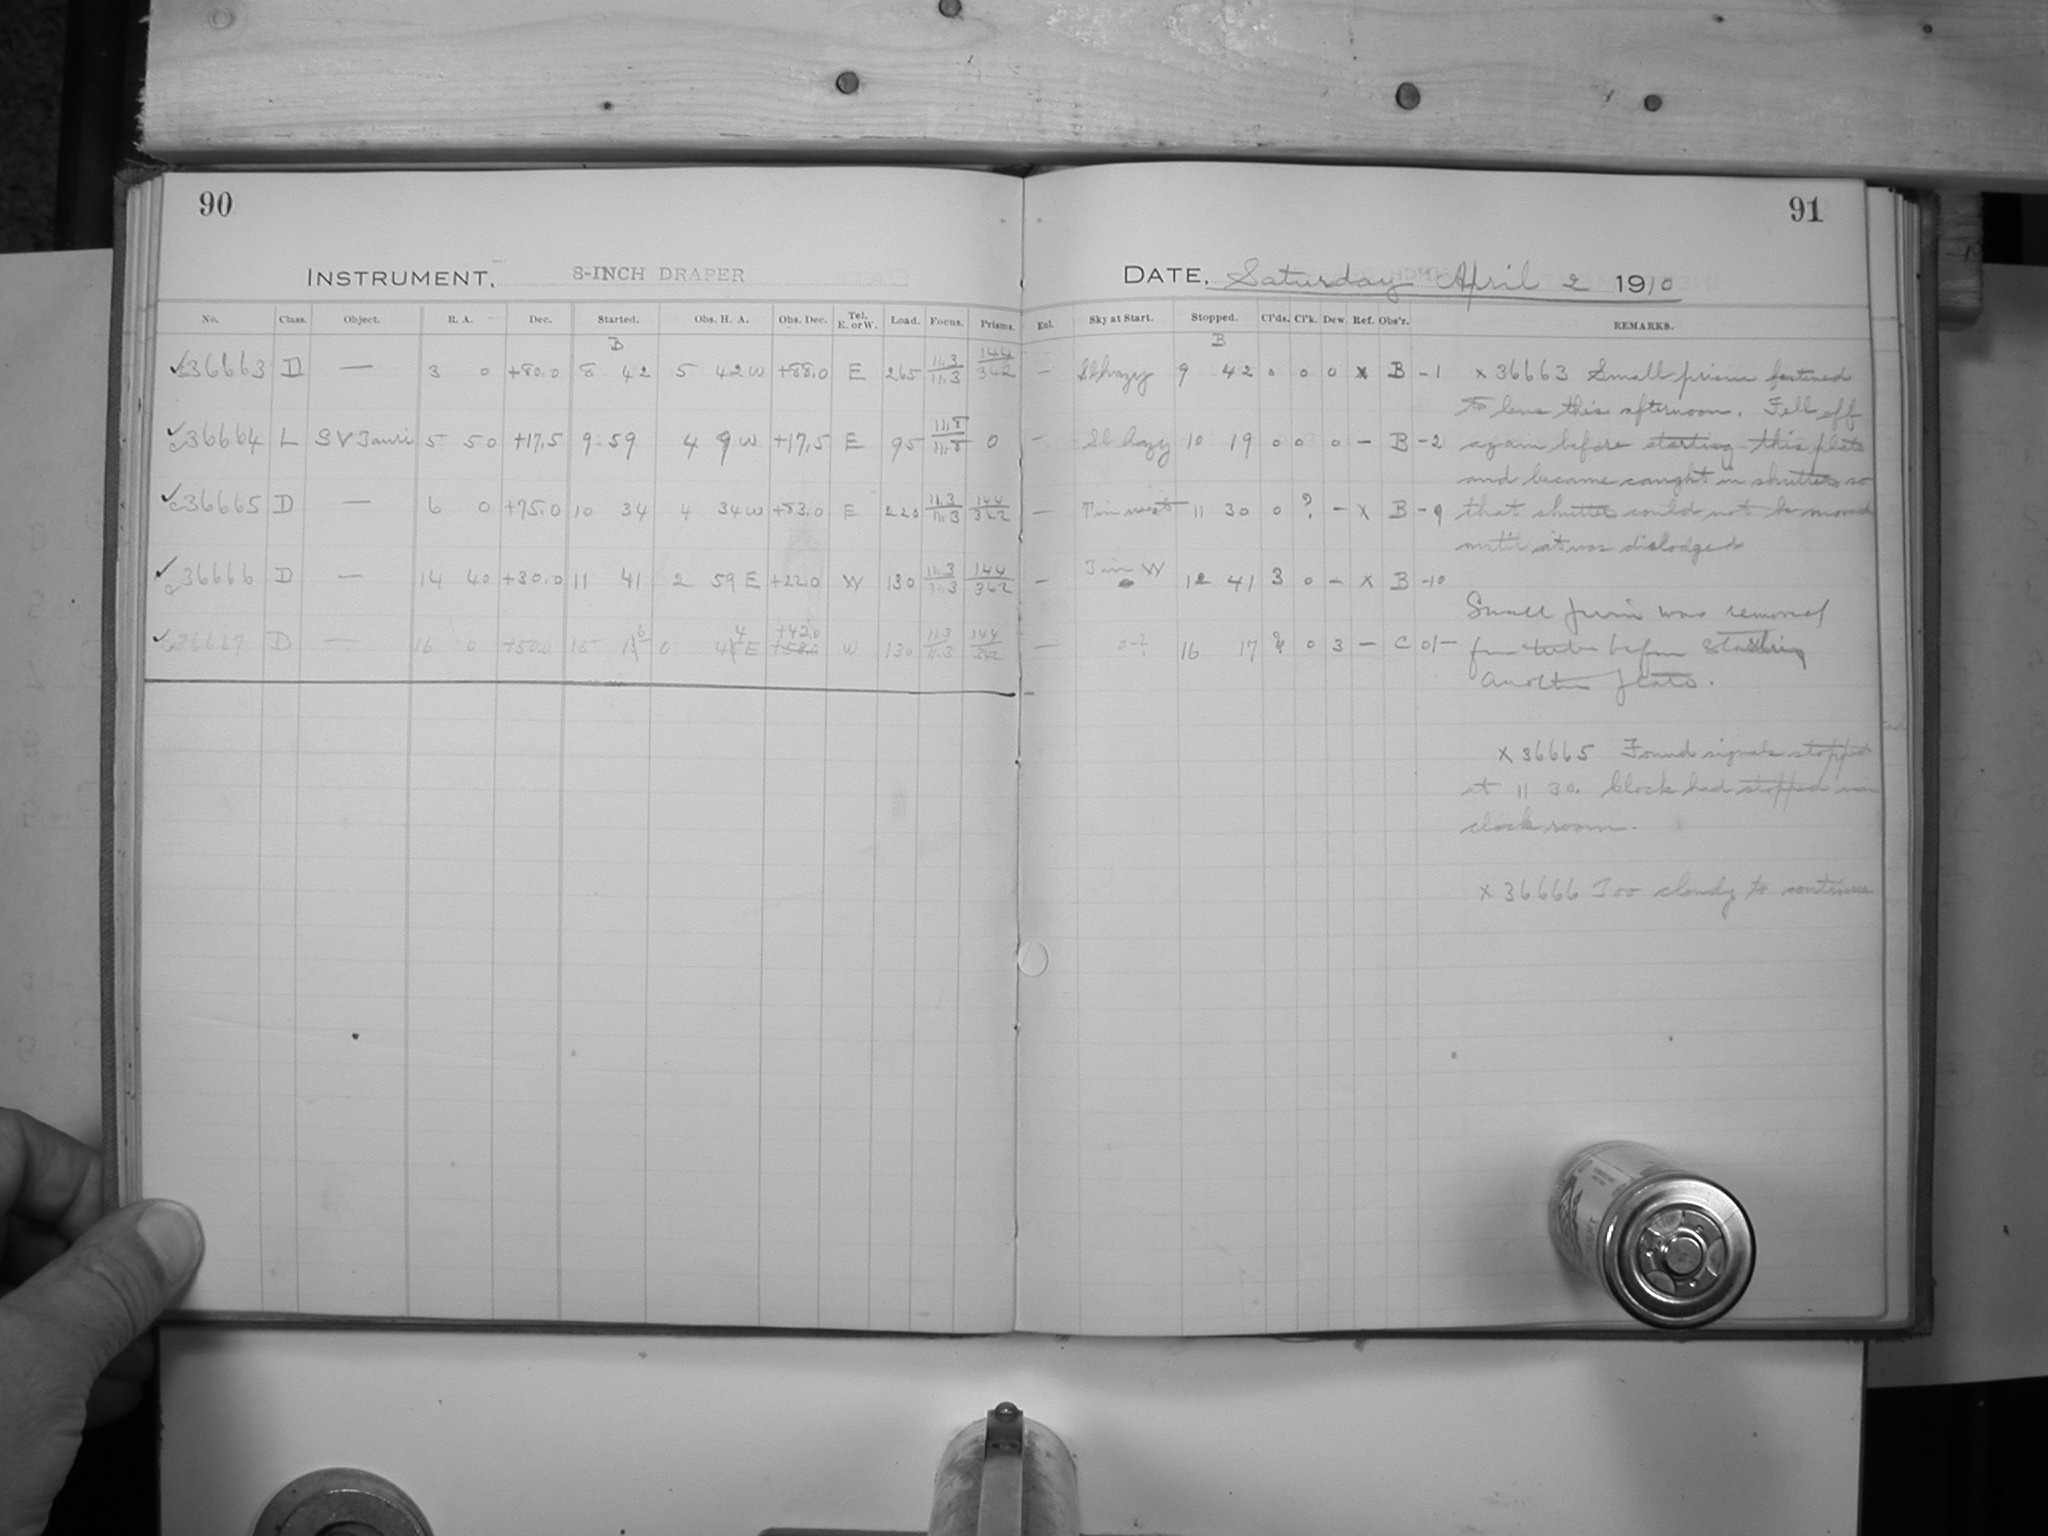 90
INSTRUMENT, 8-INCH DRAPER
No. Class. Object. R. A. Dec. Started. Obs. H. A. Obs. Dec. Tel. E. or W. Load. Focus. Prisms.
B
✓c36663 D — 3 0 +80.0 8 42 5 42 W +88.0 E 265 11.3/11.3 144/342
✓c36664 L SV Tauri 5 50 +17.5 9 59 4 9 W +17.5 E 95 11.8/11.8 0
✓c36665 D — 6 0 +75.0 10 34 4 34 W +83.0 E 220 11.3/11.3 144/342
✓c36666 D — 14 40 +30.0 11 41 2 59 E +22.0 W 130 11.3/11.3 144/342
✓c36667 D — 16 0 +50.0 15 16 0 44 E +42.0 +58.0 W 130 11.3/11.3 144/342
91
DATE, Saturday April 2 1910
Enl. Sky at Start. Stopped. Cl'ds. Cl'k. Dew. Ref. Obs'r. REMARKS.
B
— Sl hazy 9 42 0 0 0 x B -1
— Sl hazy 10 19 0 0 0 — B -2
— 11 30 0 ? — x B -9
— W 12 41 3 0 — x B -10
— 0-? 16 17 ? 0 3 — C 01—
x 36663 Small prism fastened
to lens this afternoon. Fell off
again before starting this plate
and became caught in shutter so
that shutter could not be moved
until it was dislodged
Small prism was removed
from tube before starting
another plate.
x 36665 Found signals stopped
at 11 30. Clock had stopped in
clock room.
x 36666 Too cloudy to continue